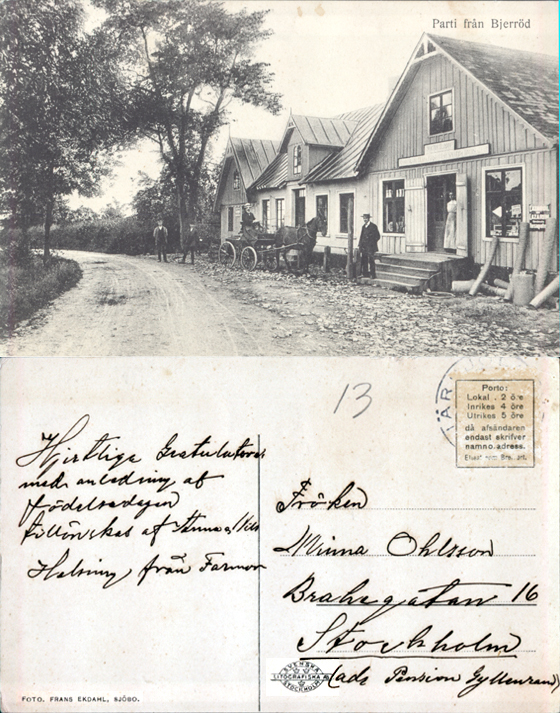 Parti från Bjerröd
13
Porto:
Lokal . 2 öre
Inrikes 4 öre
Utrikes 5 öre
då afsändaren
endast skrifver
namn o. adress.
Hjertliga Gratulationer
med anledning af
födelsedagen
tillönskas af
Helsning från Farmor
Fröken
Minna Ohlsson
Brahegatan 16
Stockholm
Pension Gyllenram
SVENSKA
LITOGRAFISKA A.B.
STOCKHOLM
FOTO. FRANS EKDAHL, SJÖBO.